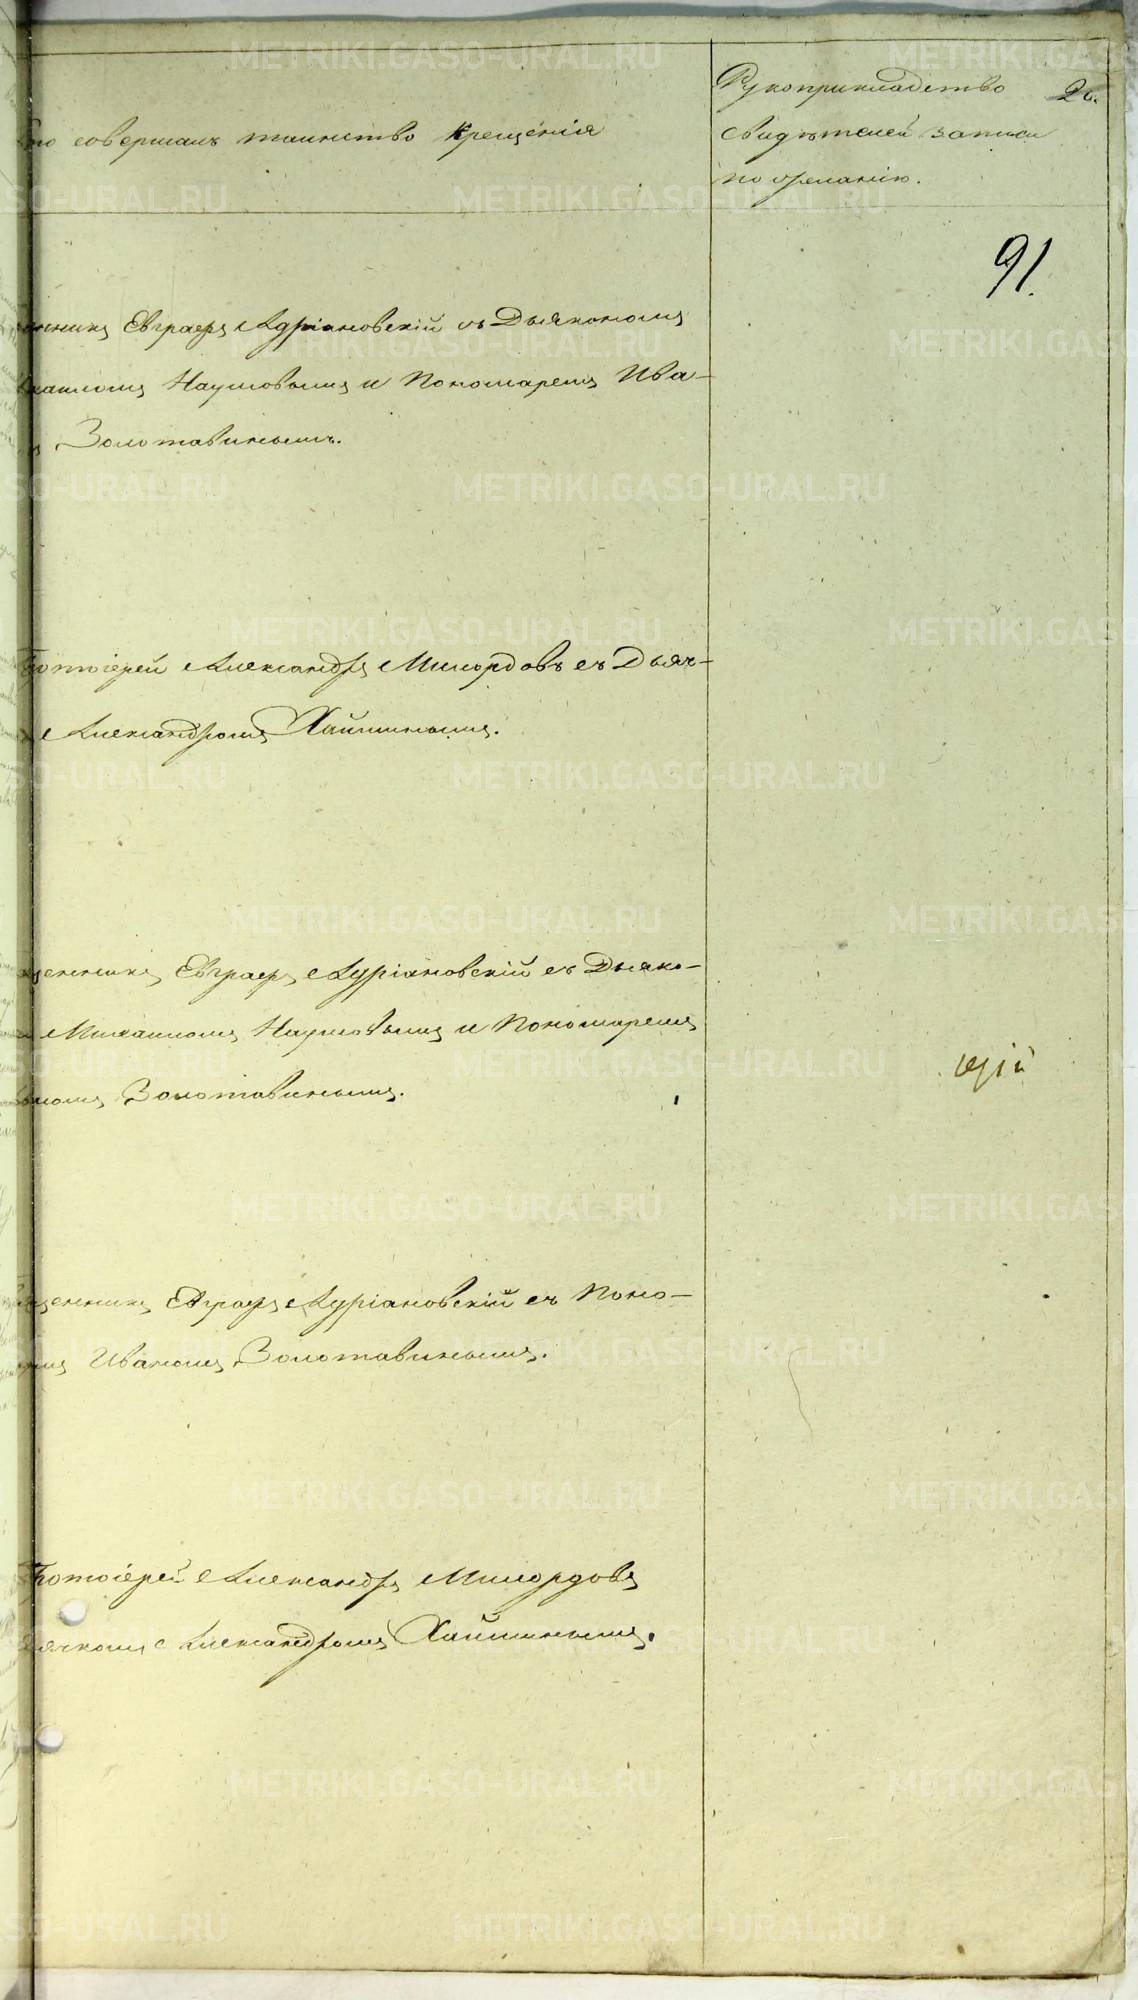 то совершалъ таинство крещенія
Рукоприкладство
свидѣтелей записи
по желанію.
26.
91.
щенникъ Евграфъ Адріановскій съ Дьякономъ
хаиломъ Наумовымъ и Пономаремъ Ива-
Золотавинымъ.
ротоіерей Александръ Милордовъ съ Дьяч-
Александромъ Хайминымъ.
щенникъ Евграфъ Адріановскій съ Дьяко-
Михаиломъ Наумовымъ и Пономаремъ
Золотавинымъ.
щенникъ Евграфъ Адріановскій съ Поно-
Иваномъ Золотавинымъ.
ротоіерей Александръ Милордовъ
ячкомъ Александромъ Хайминымъ.
METRIKI.GASO-URAL.RU